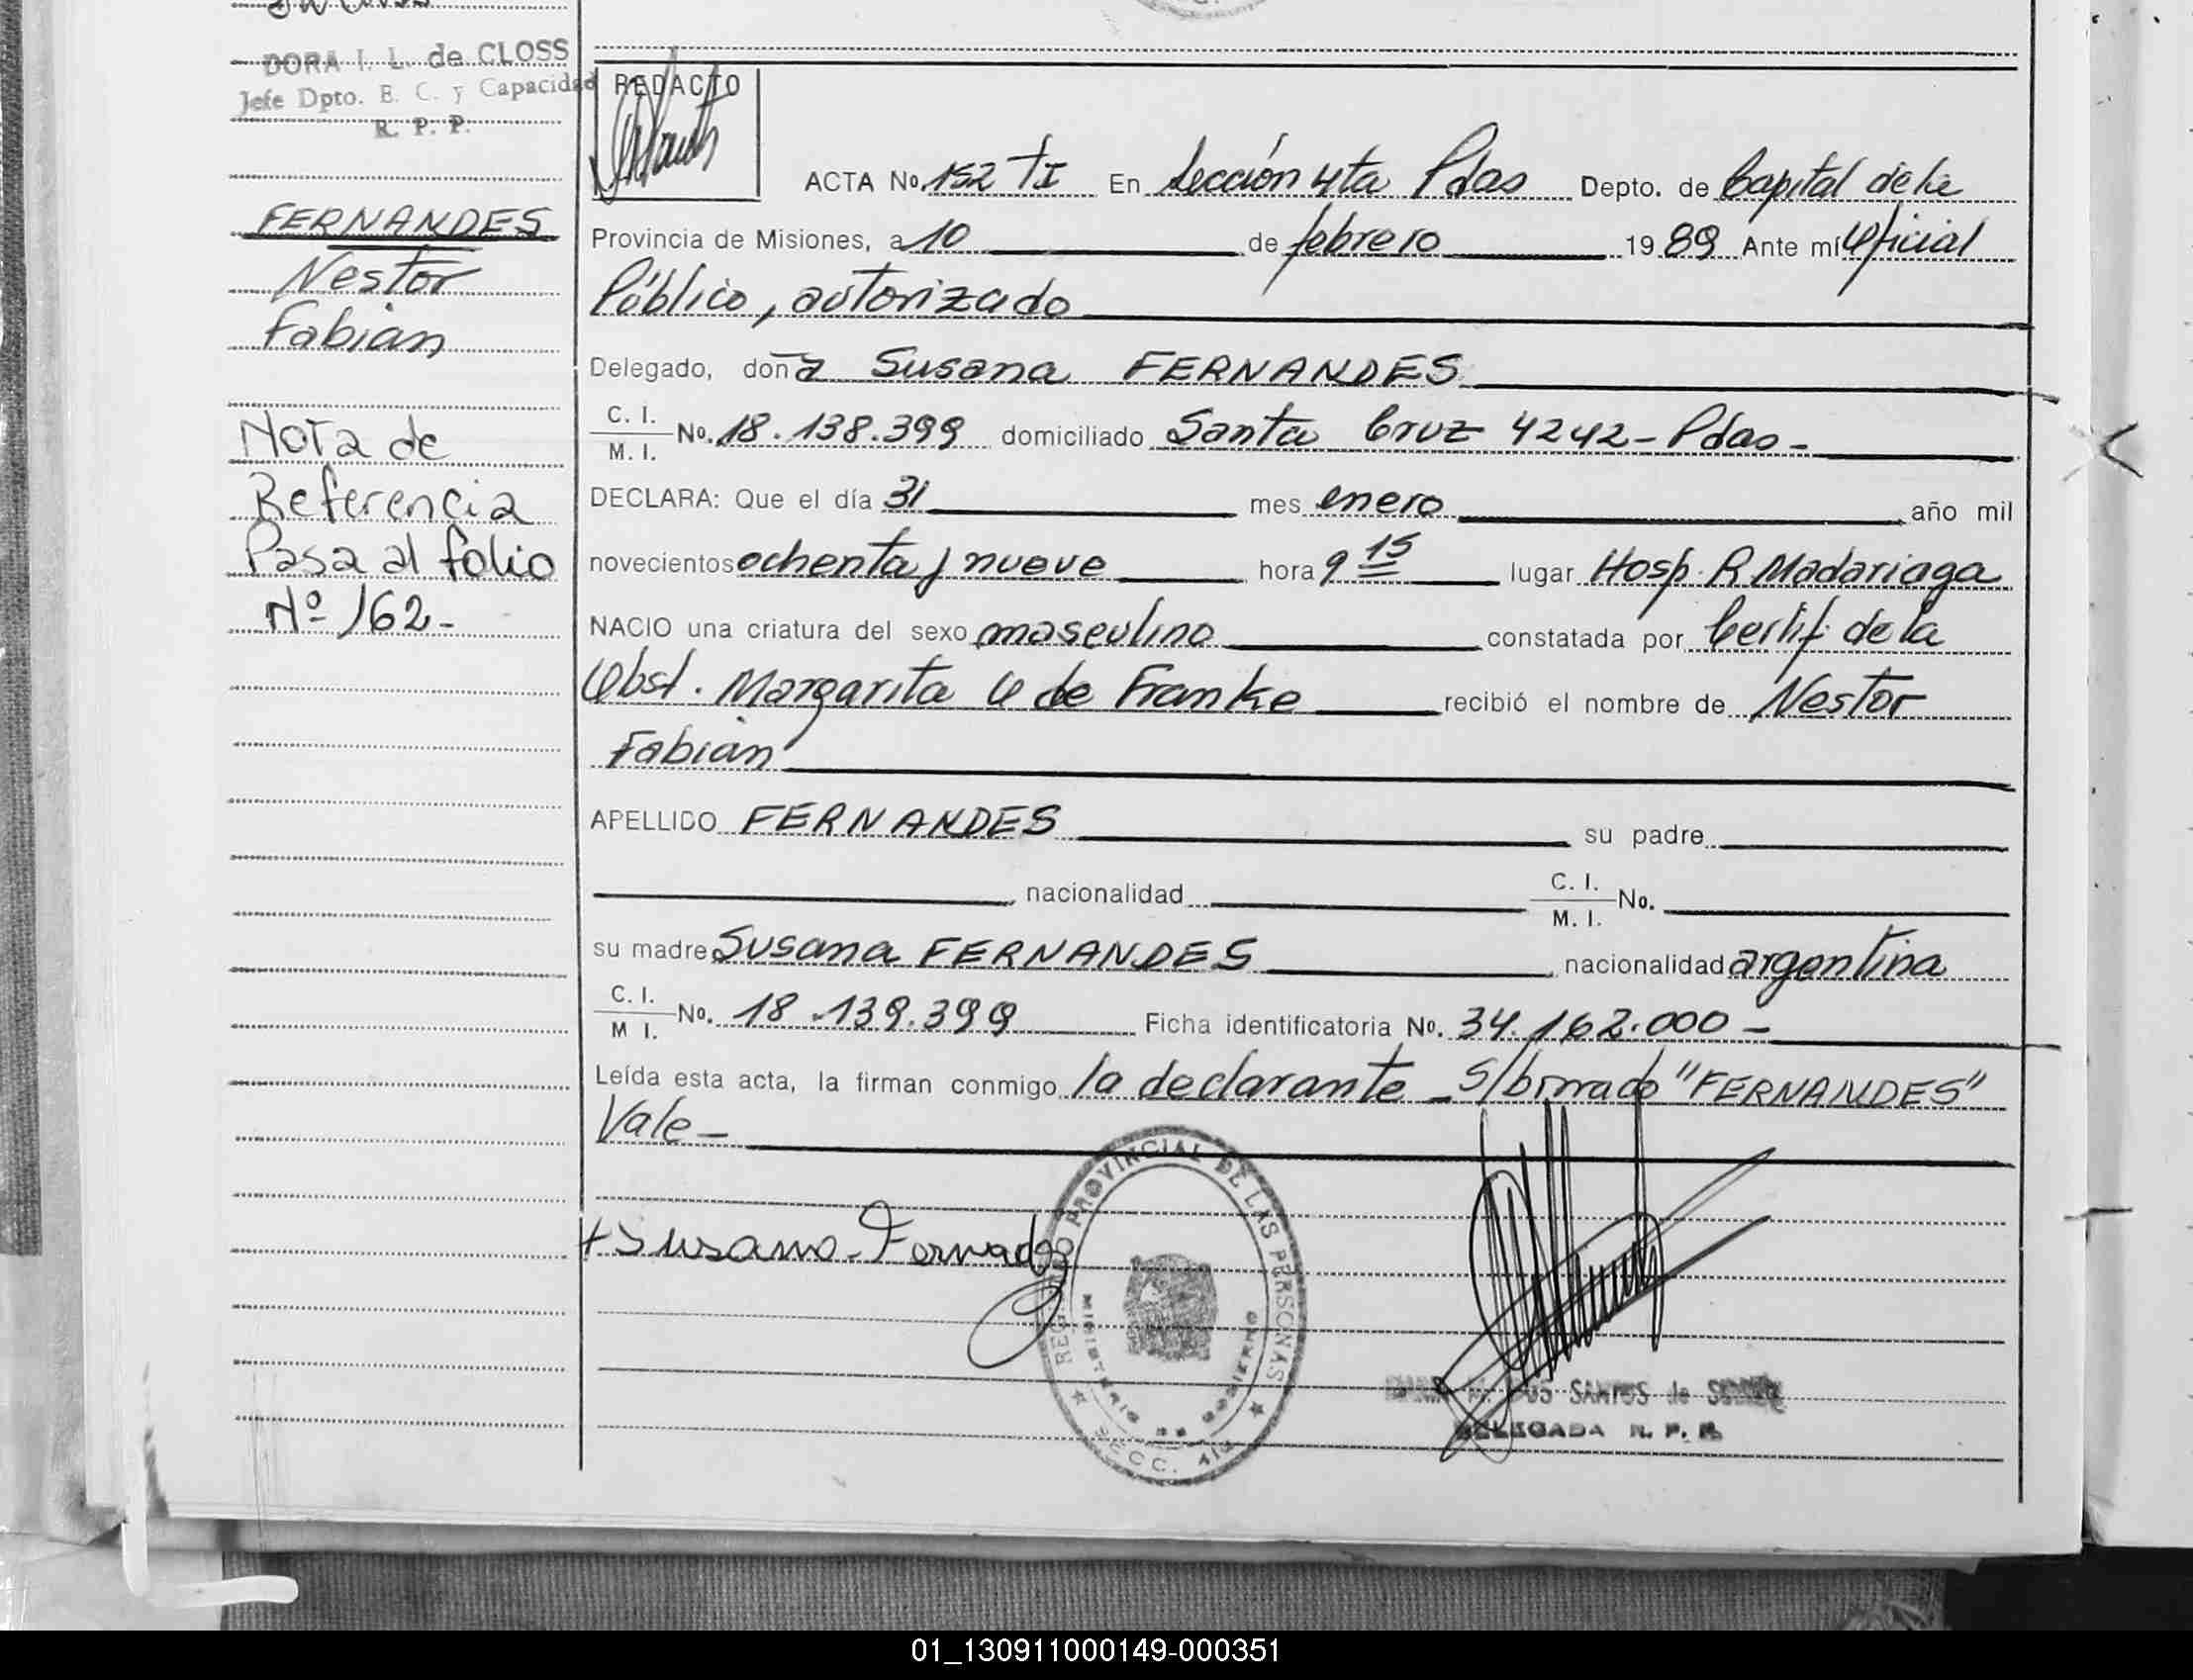 DORA I. L. de CLOSS
Jefe Dpto. E. C. y Capacidad
R. P. P.
FERNANDES
Nestor
Fabián
Nota de
Referencia
Pasa al folio
Nº 162-
REDACTO
ACTA No. 152 TI En Sección 4ta Pdas Depto. de Capital de la
Provincia de Misiones, a 10 de febrero 19 89 Ante mí Oficial
Público, autorizado
Delegado, doña Susana FERNANDES
C. I.
M. I.
No. 18.138.399 domiciliado Santa Cruz 4242-Pdas-
DECLARA: Que el día 31 mes enero año mil
novecientos ochenta y nueve hora 9 15 lugar Hosp. R Madariaga
NACIO una criatura del sexo masculino constatada por Certif. de la
Obst. Margarita O de Franke recibió el nombre de Nestor
Fabián
APELLIDO FERNANDES su padre
nacionalidad C. I.
M. I.
No.
su madre Susana FERNANDES nacionalidad argentina
C. I.
M I.
No. 18.139.399 Ficha identificatoria No. 34.162.000-
Leída esta acta, la firman conmigo la declarante - S/borrado "FERNANDES"
Vale-
Susana Fernandez
REGISTRO PROVINCIAL DE LAS PERSONAS
MINISTERIO DE GOBIERNO
SECC. 4ta
SANTOS de
DELEGADA R. P. P.
01_130911000149-000351